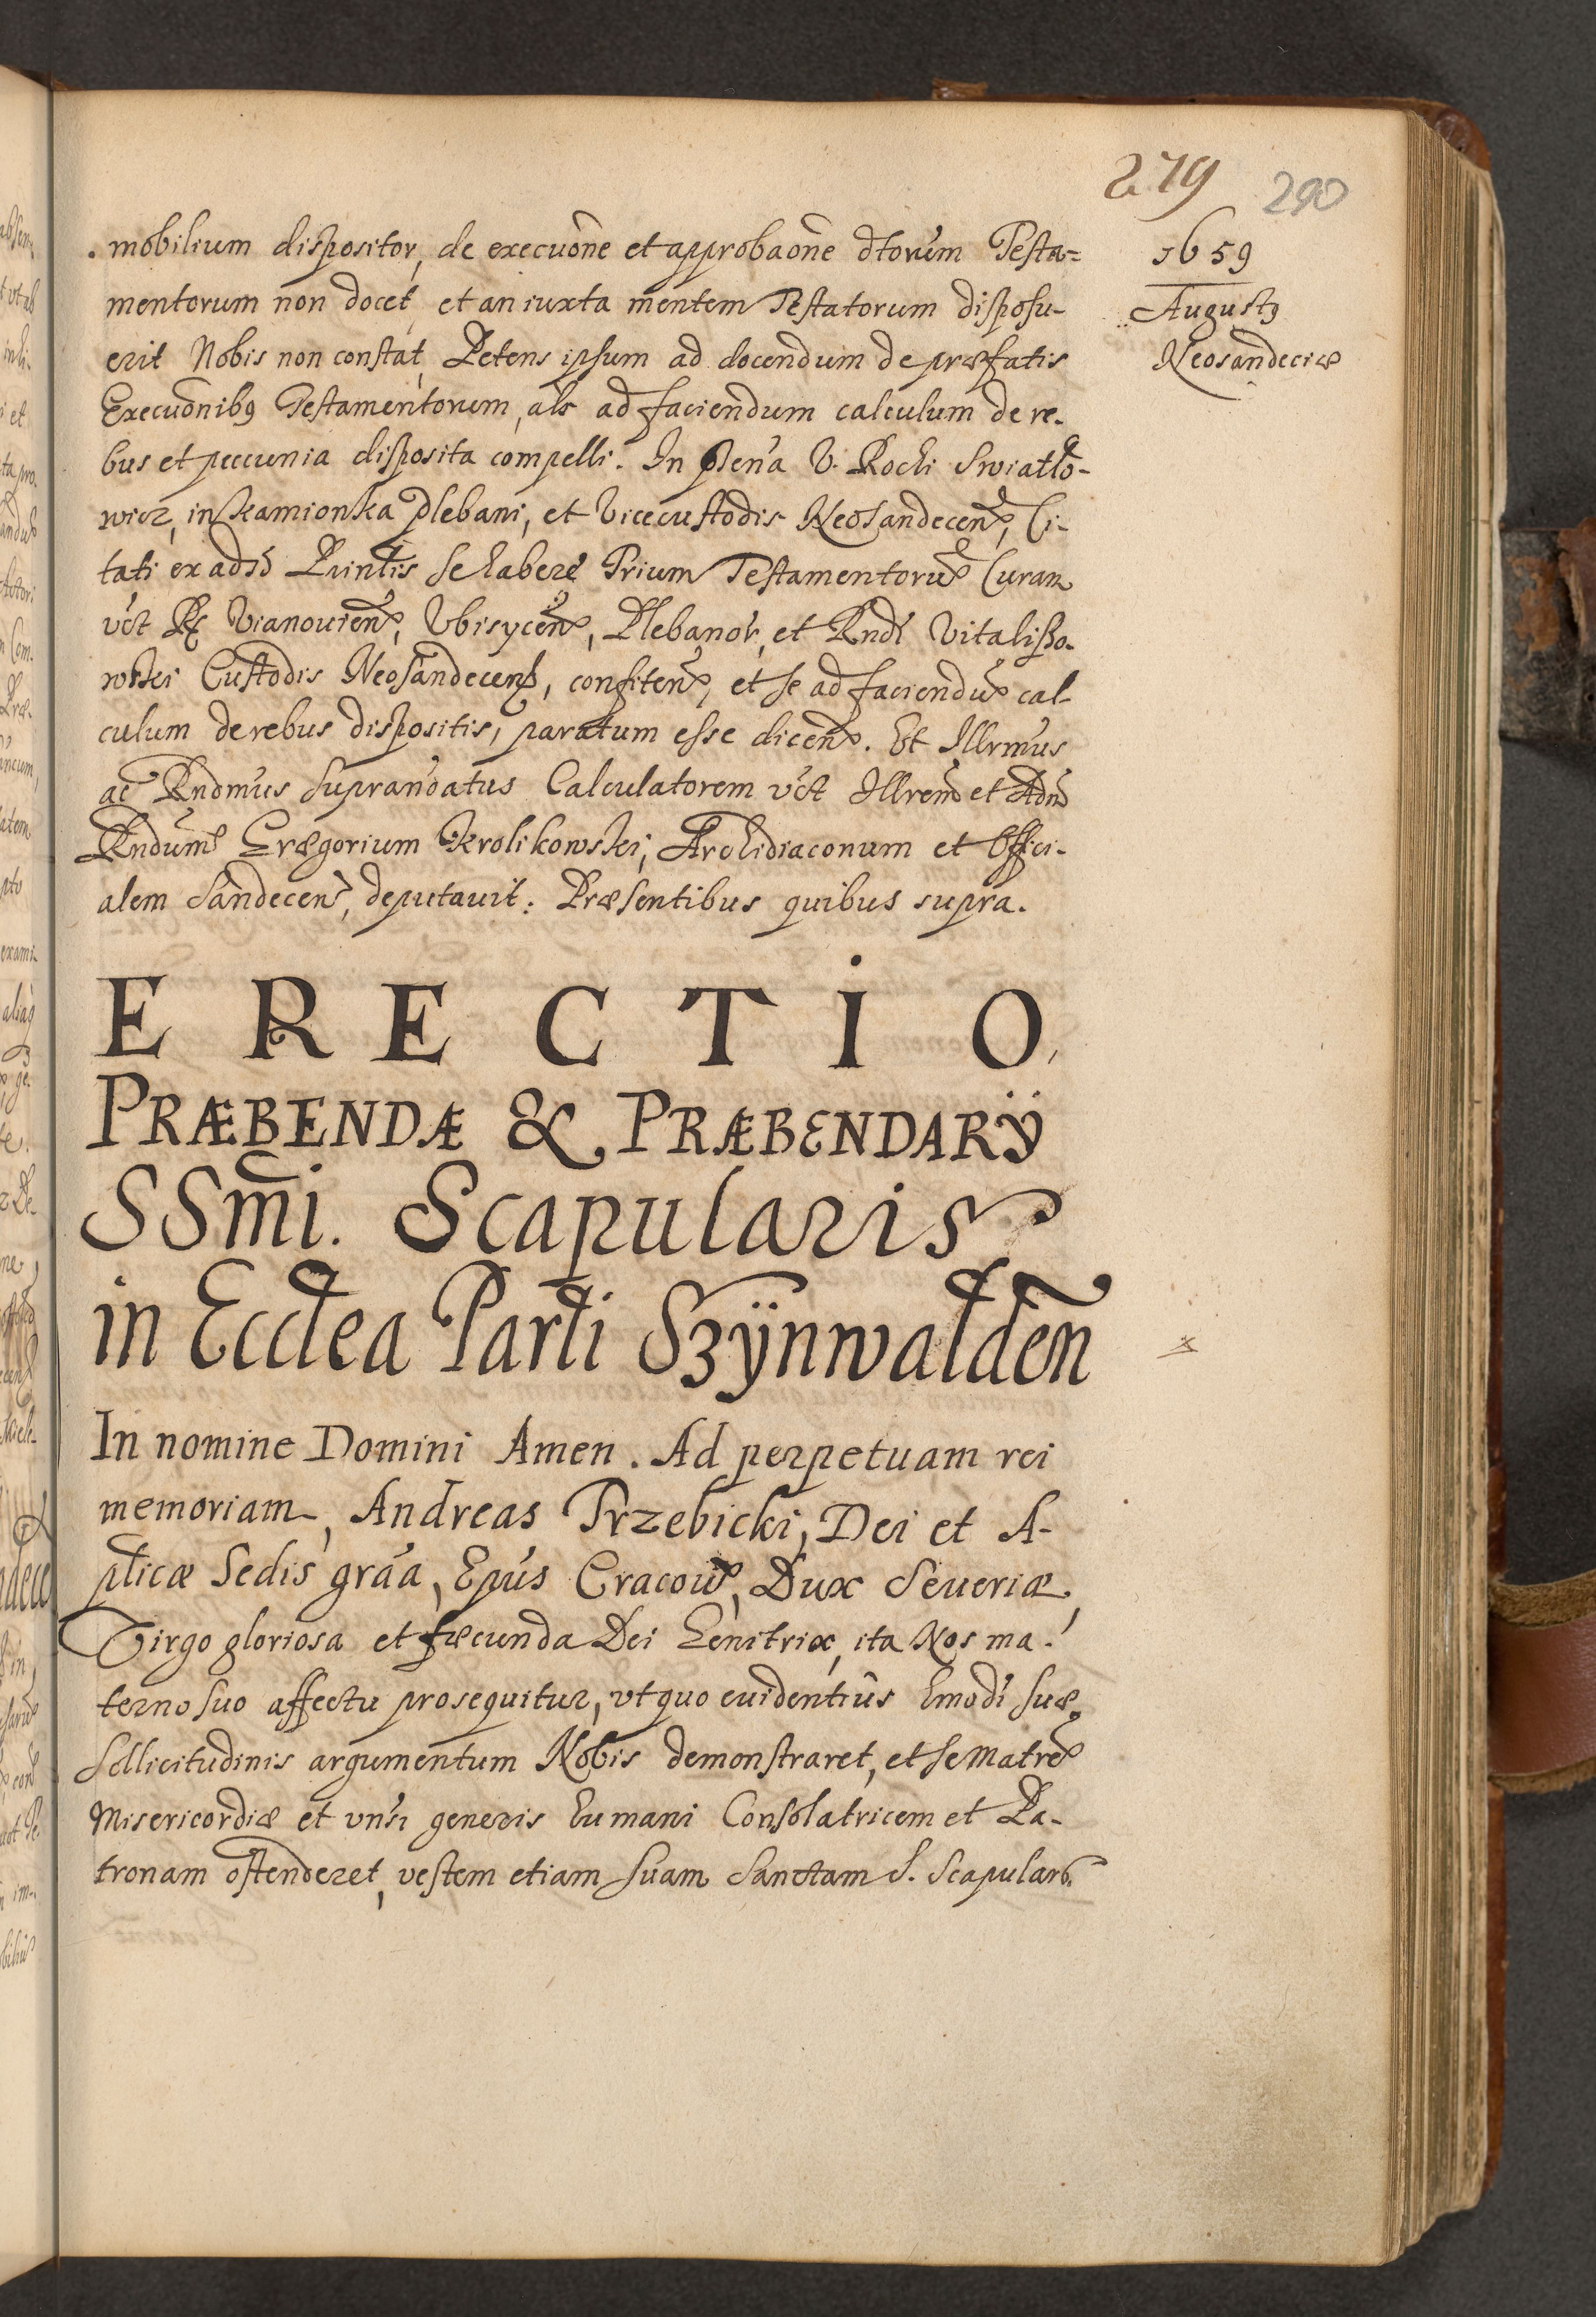 279 290
1659
Augustꝯ
Neosandeciæ
mobilium dispositor, de execuõne et approbaõne dtorum Testa=
mentorum non docet, et an iuxta mentem Testatorum disposu-
erit Nobis non constat, Petens ipsum ad docendum de præfatis
Execuõnibꝯ Testamentorum, als ad faciendum calculum de re-
bus et peccunia disposita compelli. In V. Rochi Swiatło-
wicz, in Kamionka Plebani, et Vicecustodis Neosandecen, Ci-
tati ex adso Printis se habere Trium Testamentorũ Curam
vct Vianouien, Vbisycen, Plebanor, et Rndi Vitalisso-
wski Custodis Neosandecens, confiten, et se ad faciendũ cal-
culum de rebus dispositis, paratum esse dicen. Et Illrmus
ac Rndmus supranoatus Calculatorem vct Illrem et Adm
Rndum Grægorium Krolikowski, Archidiaconum et Offici-
alem Sandecen, deputauit: Præsentibus quibus supra.
ERECTIO,
PRÆBENDÆ & PRÆBENDARÿ
SSm̃i. Scapularis
in Eccłea Parłi Szÿnwałden
In nomine Domini Amen. Ad perpetuam rei
memoriam, Andreas Trzebicki, Dei et A-
płicæ Sedis grãa, Epũs Cracoui, Dux Seueriæ,
Virgo gloriosa et fæcunda Dei Genitrix, ita Nos ma-
terno suo affectu prosequitur, vt quo euidentiùs hmodi suæ
sollicitudinis argumentum Nobis demonstraret, et se Matrẽ
Misericordiæ et vnsi generis humani Consolatricem et Pa-
tronam ostenderet, vestem etiam suam Sanctam S. Scapularis